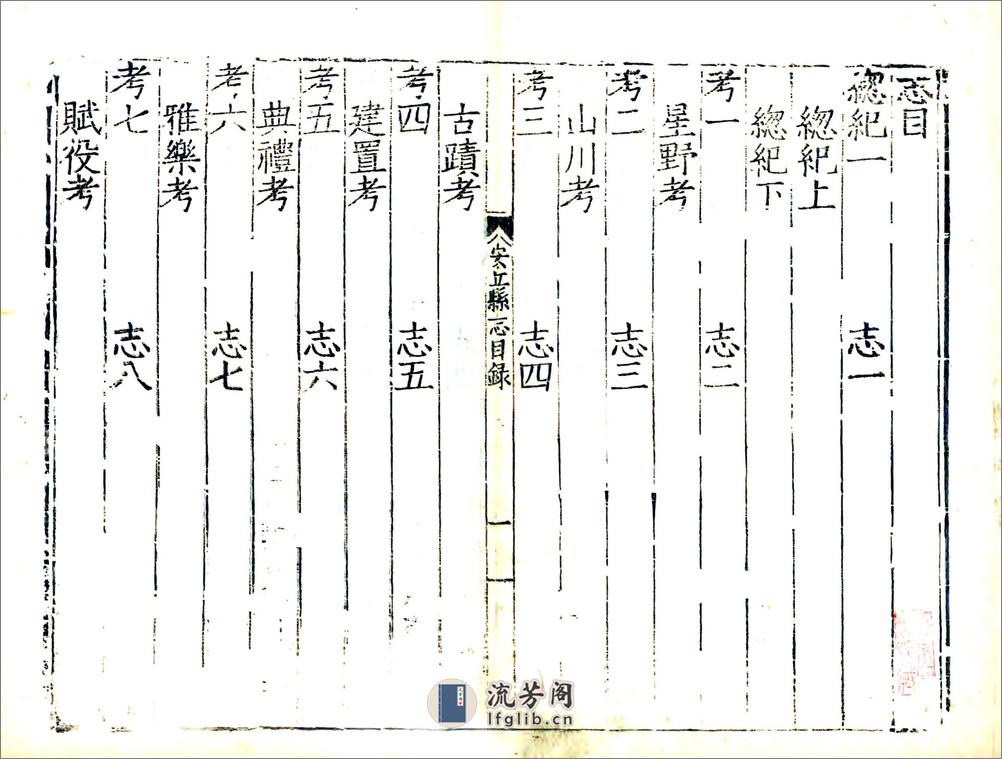 志目
緫紀一 志一
緫紀上
緫紀下
考一 志二
星野考
考二 志三
山川考
考三 志四
古蹟考
安丘縣志目録 一
考四 志五
建置考
考五 志六
典禮考
考六 志七
雅樂考
考七 志八
賦役考
流芳阁
lfglib.cn